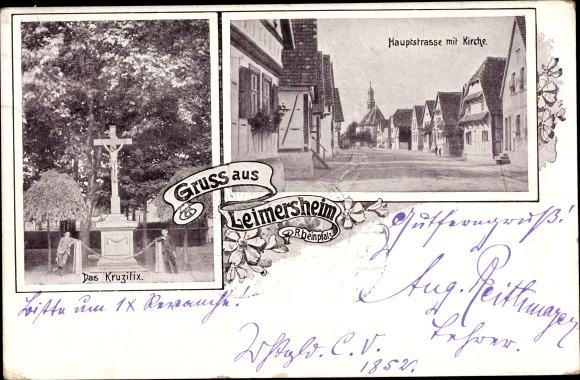 Hauptstrasse mit Kirche.
Gruss aus
Leimersheim
Rheinpfalz
Das Kruzifix.
Gutferngruß!
Bitte um 1x Revanche!
Aug. Reithmayer
Lehrer.
C. V.
1852.